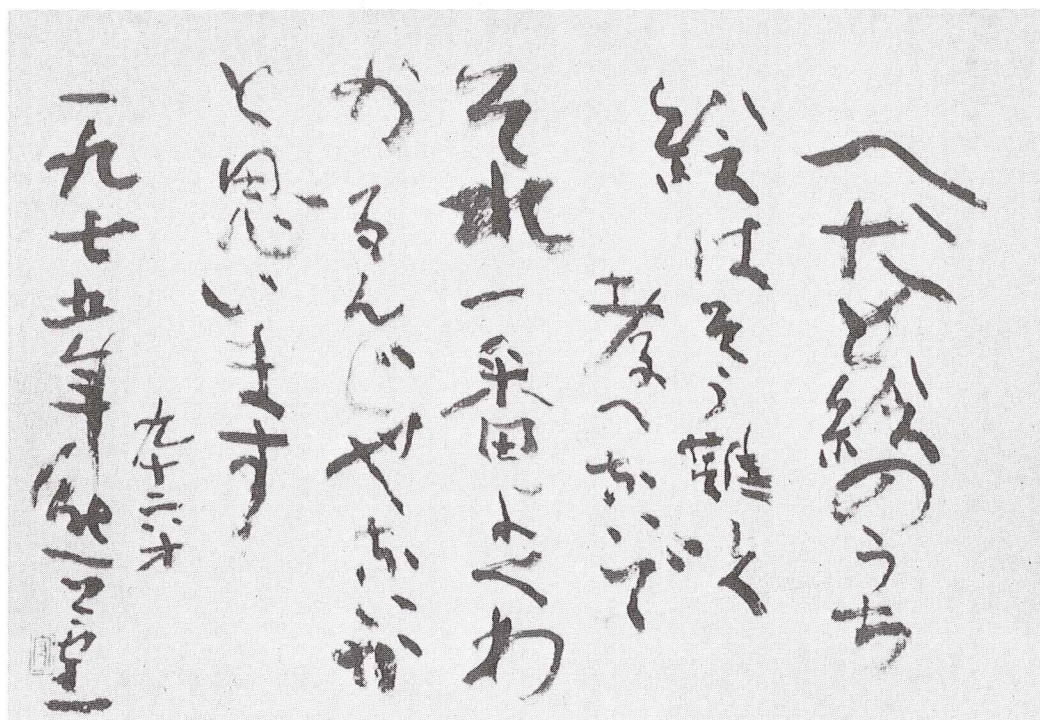 へたも絵のうち
絵はそう難しく
考へないで
それ一番よくわ
かるんじやないか
と思います
九十六才
一九七五年熊谷守一